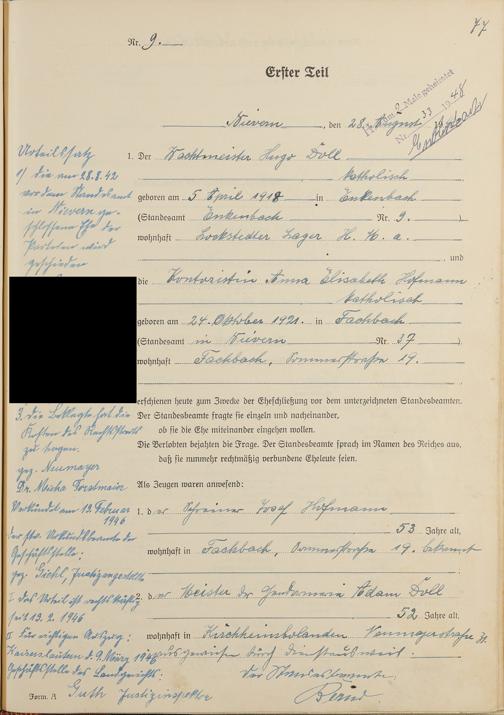 77
Nr. 9.
Erster Teil
Nievern, den 28. August 19
zum 2. Male geheiratet
Nr. 33 1948
Enkenbach
1. Der Wachtmeister Hugo Döll
katholisch
geboren am 5. April 1918 in Enkenbach
(Standesamt Enkenbach Nr. 9.)
wohnhaft Lockstedter Lager H. U. a.
und
die Kontoristin Anna Elisabeth Hofmann
katholisch
geboren am 24. Oktober 1921. in Fachbach
(Standesamt in Nievern Nr. 37)
wohnhaft Fachbach, Sommerstraße 19.
erschienen heute zum Zwecke der Eheschließung vor dem unterzeichneten Standesbeamten.
Der Standesbeamte fragte sie einzeln und nacheinander,
ob sie die Ehe miteinander eingehen wollen.
Die Verlobten bejahten die Frage. Der Standesbeamte sprach im Namen des Reiches aus,
daß sie nunmehr rechtmäßig verbundene Eheleute seien.
Als Zeugen waren anwesend:
1. der Schreiner Josef Hofmann
53 Jahre alt,
wohnhaft in Fachbach, Sommerstraße 19. bekannt
2. der Meister der Gendarmerie Adam Döll
52 Jahre alt,
wohnhaft in Kirchheimbolanden
ausgewiesen durch Dienstausweis.
Der Standesbeamte
Form. A
Urteilssatz
1) die am 28.8.42
vor dem Standesamt
in Nievern ge-
schlossene Ehe der
Parteien wird
geschieden
3. die Beklagte hat die
Kosten des Rechtsstreits
zu tragen.
gez. Neumayer
Dr. Micha
Verkündet am 13. Februar
1946
der stv. Urkundsbeamte der
Geschäftsstelle:
gez. Giehl, Justizangestellte
I das Urteil ist rechtskräftig
seit 13.2.1946
II Für richtigen Auszug:
Kaiserslautern d. 9. März 1946
Geschäftsstelle des Landgerichts:
Guth Justizinspektor